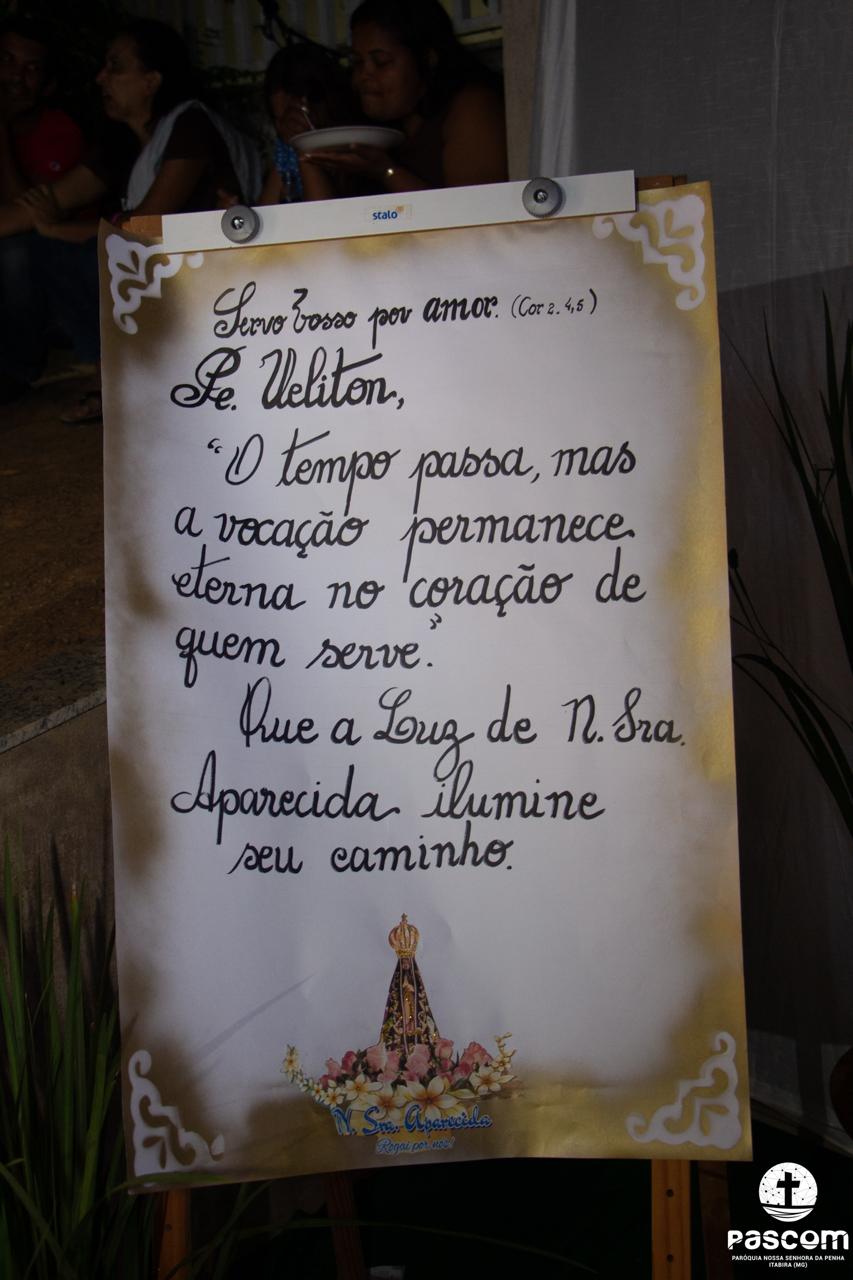 stalo
Servo vosso por amor. (Cor 2. 4,5)
Pe. Ueliton,
"O tempo passa, mas
a vocação permanece
eterna no coração de
quem serve."
Que a Luz de N. Sra.
Aparecida ilumine
seu caminho.
N. Sra. Aparecida
Rogai por nós!
PASCOM
PARÓQUIA NOSSA SENHORA DA PENHA
ITABIRA (MG)